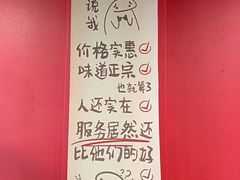 说
我
价格实惠
味道正宗
也就算了
人还实在
服务居然还
比他们的好
??